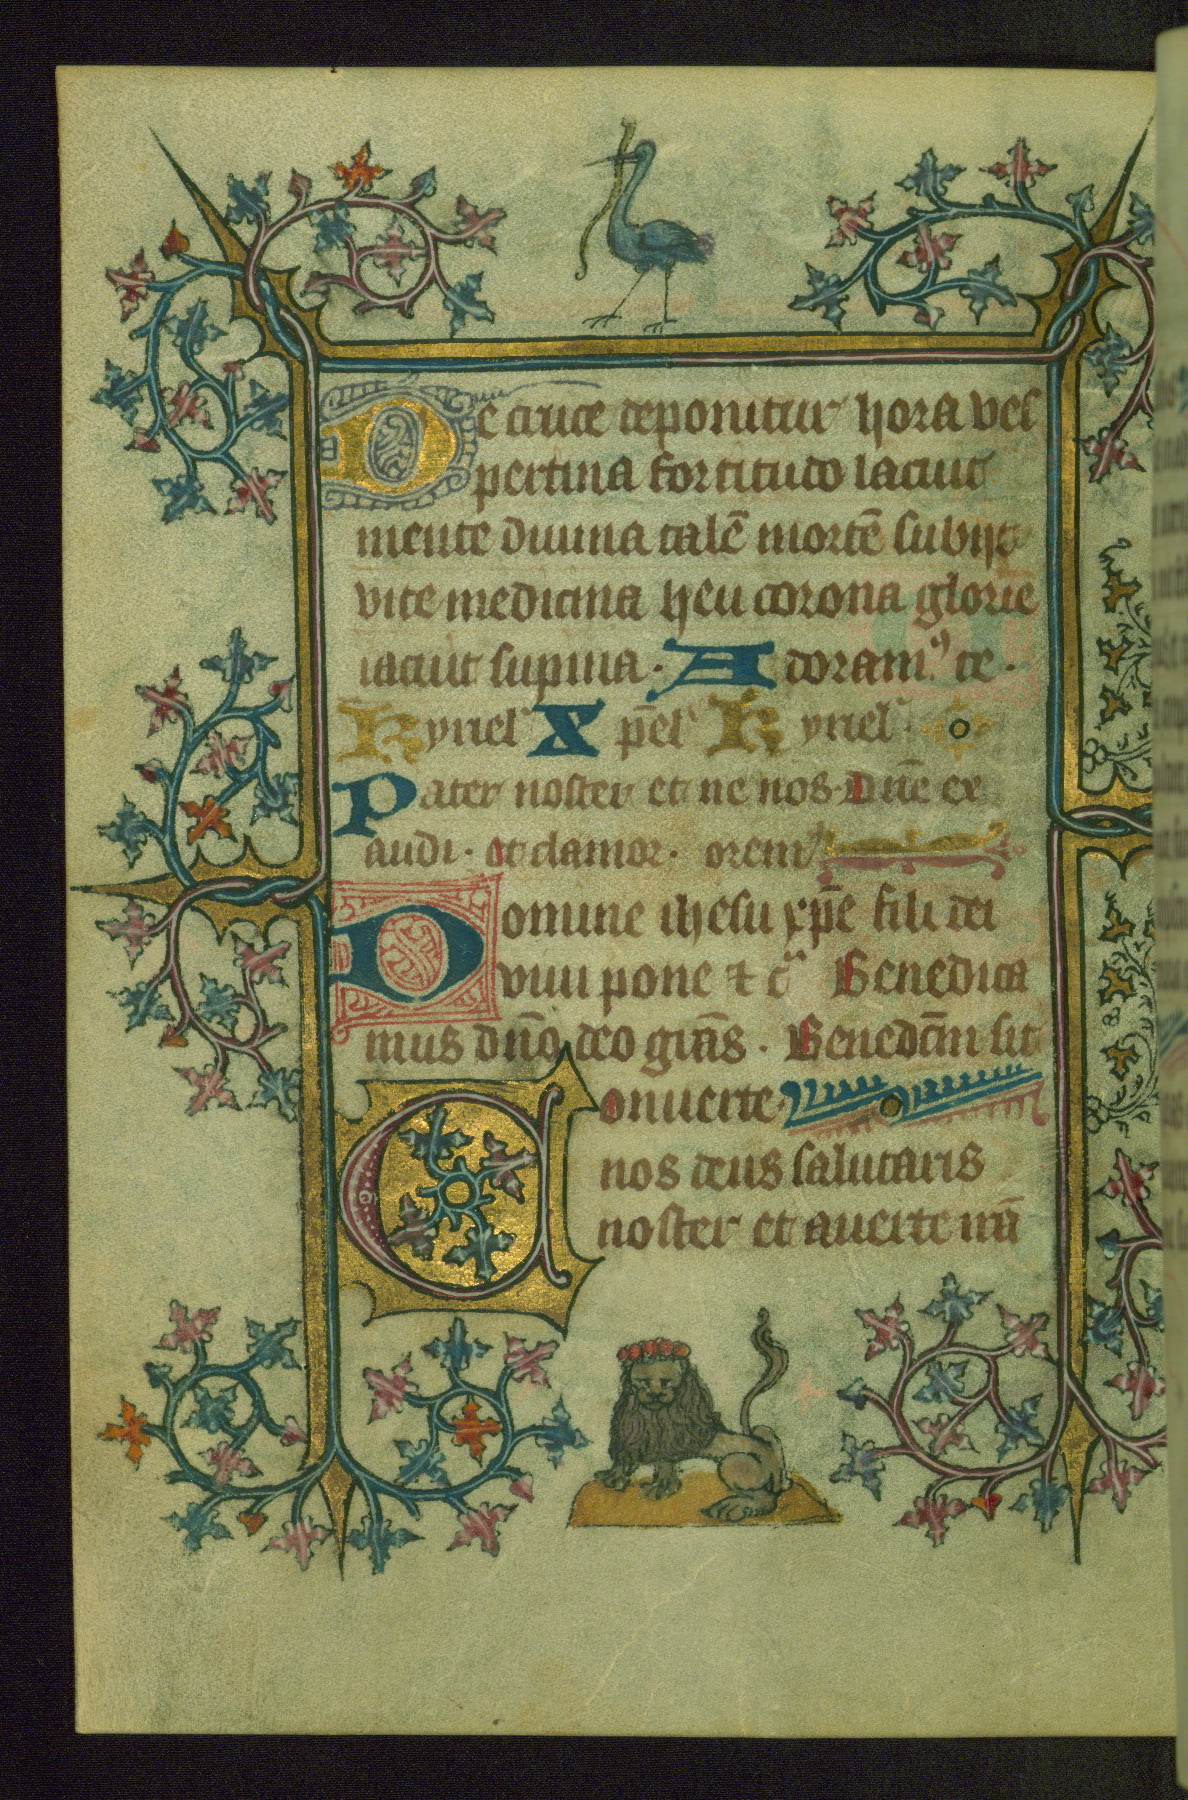 De cruce deponitur hora ves
pertina fortitudo latuit
mente diuina talē mortē subijt
vite medicina heu corona glorie
iacuit supina. Adoram⁹ te.
Kyriel' Xp̄el' Kyriel'
Pater noster et ne nos. Dn̄e ex
audi. et clamor. orem⁹
Domine ihesu xp̄e fili dei
viui pone ⁊ cᵃ Benedica
mus dn̄o deo grās. Benedc̄m sit
Conuerte
nos deus salutaris
noster et auerte irā